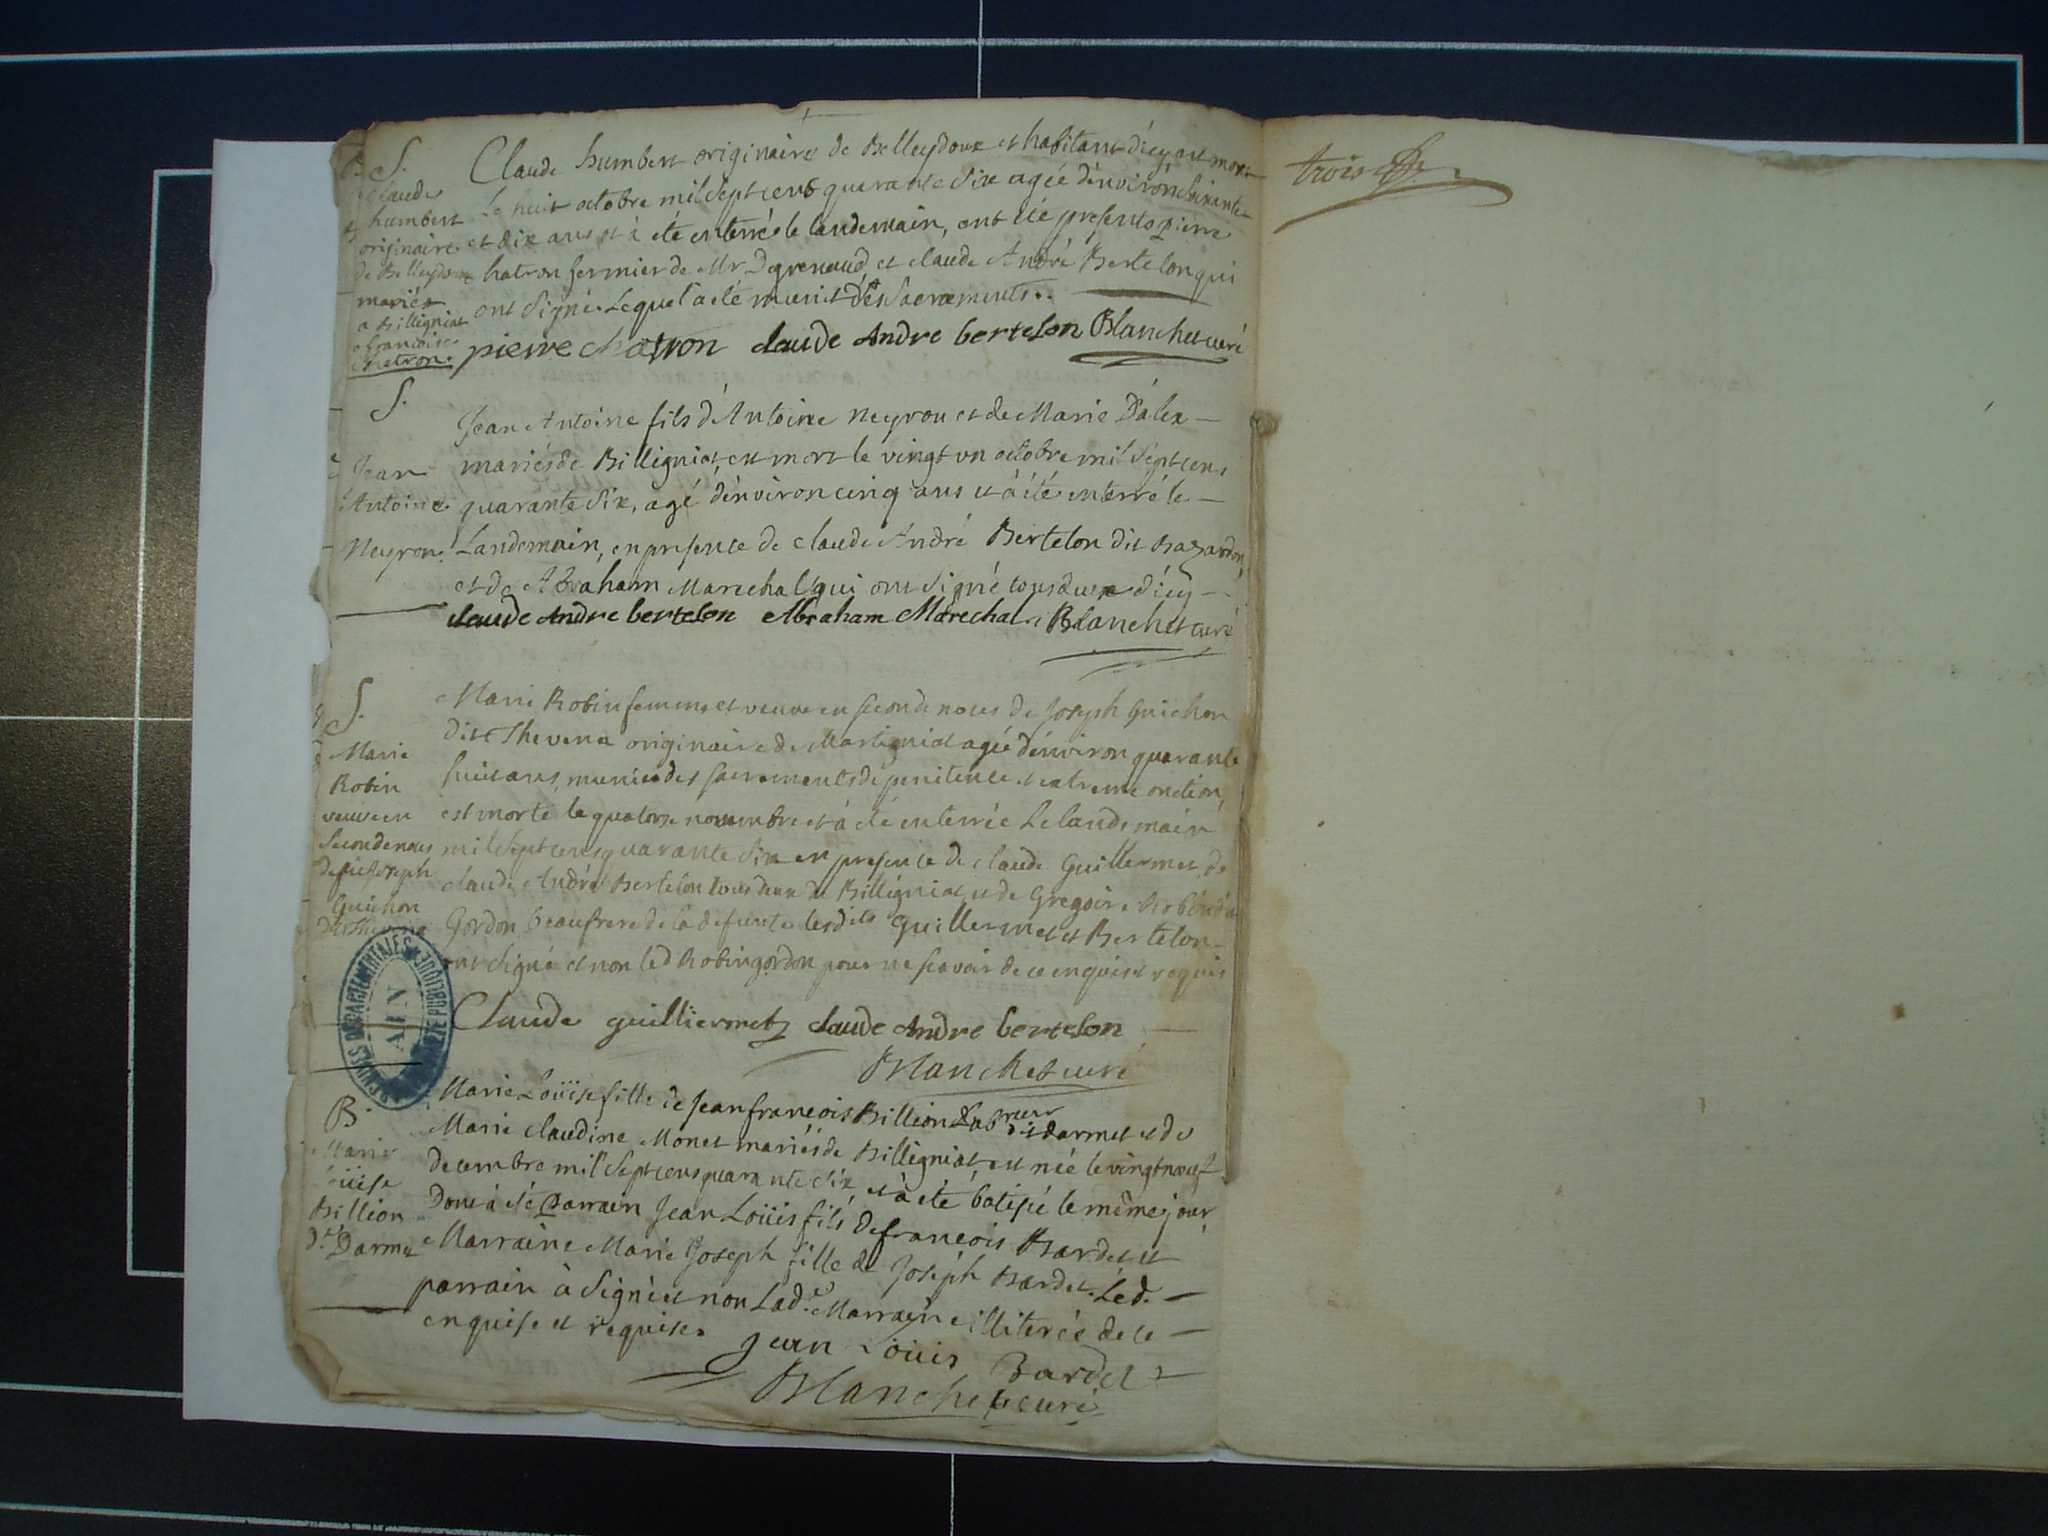 S.
Claude
humbert
originaire
de Belleydoux
mariés
a Billigniat
francoise
Chatron.
Claude humbert originaire de Belleydoux et habitant d'icy est mort
Le huit octobre mil sept cens quarante Six agée d'environ soixante
et dix ans et à été enterré le landemain, ont été presents pierre
hatron fermier de Mr Degrenaud et claude André Bertelon qui
ont signé. Lequel a été munit des Sacrements..
pierre chatron claude Andre bertelon Blanchet curé
S.
Jean
Antoine
Neyron.
Jean Antoine fils d'Antoine neyron et de Marie D'alex
mariés de Billigniat, est mort le vingt un octobre mil Sept cens
quarante Six, agé d'environ cinq ans et à été enterré le
Landemain, en presence de claude André Bertelon dit Bazardon,
et de Abraham Marechal qui ont Signé tous deux d'icy
claude Andre bertelon Abraham Marechal Blanchet curé
S.
Marie
Robin
veuve en
Seconde noces
de fût Joseph
Guichon
dit Thevena
Marie Robin femme et veuve en seconde noces de Joseph Guichon
dit Thevena originaire de Martigniat agée d'environ quarante
huit ans, munie des sacrements de penitence et extreme onction,
est morte le quatorze novembre et à été enterrée Le landemain
mil Sept cens quarante Six en presence de claude Guillermet, de
claude André Bertelon tous deux de Billigniat et de Gregoire Robin d.
Gordon beaufrere de la defunte lesdits Guillermet et Bertelon
ont signé et non led Robin gordon pour ne scavoir de ce enquis et requis
Claude guilliermet claude Andre bertelon
Blanchet curé
ARCHIVES DEPARTEMENTALES
AIN
B.
Marie
Loüise
Billion
d.t Darmet
Marie Loüise fille de Jean francois Billion Lab reur
dit darmet et de
Marie claudine Monet mariés de Billigniat, est née le vingt neuf
decembre mil Sept cens quarante Six et à été batisée le même jour
Dont à été Parrain Jean Loüis fils de francois Bardet et
Marraine Marie Joseph fille de Joseph Bardet. Led.
parrain à Signé et non Lad.e Marraine illiterée de ce
enquise et requise.
jean Loüis Bardet
Blanchet curé
trois